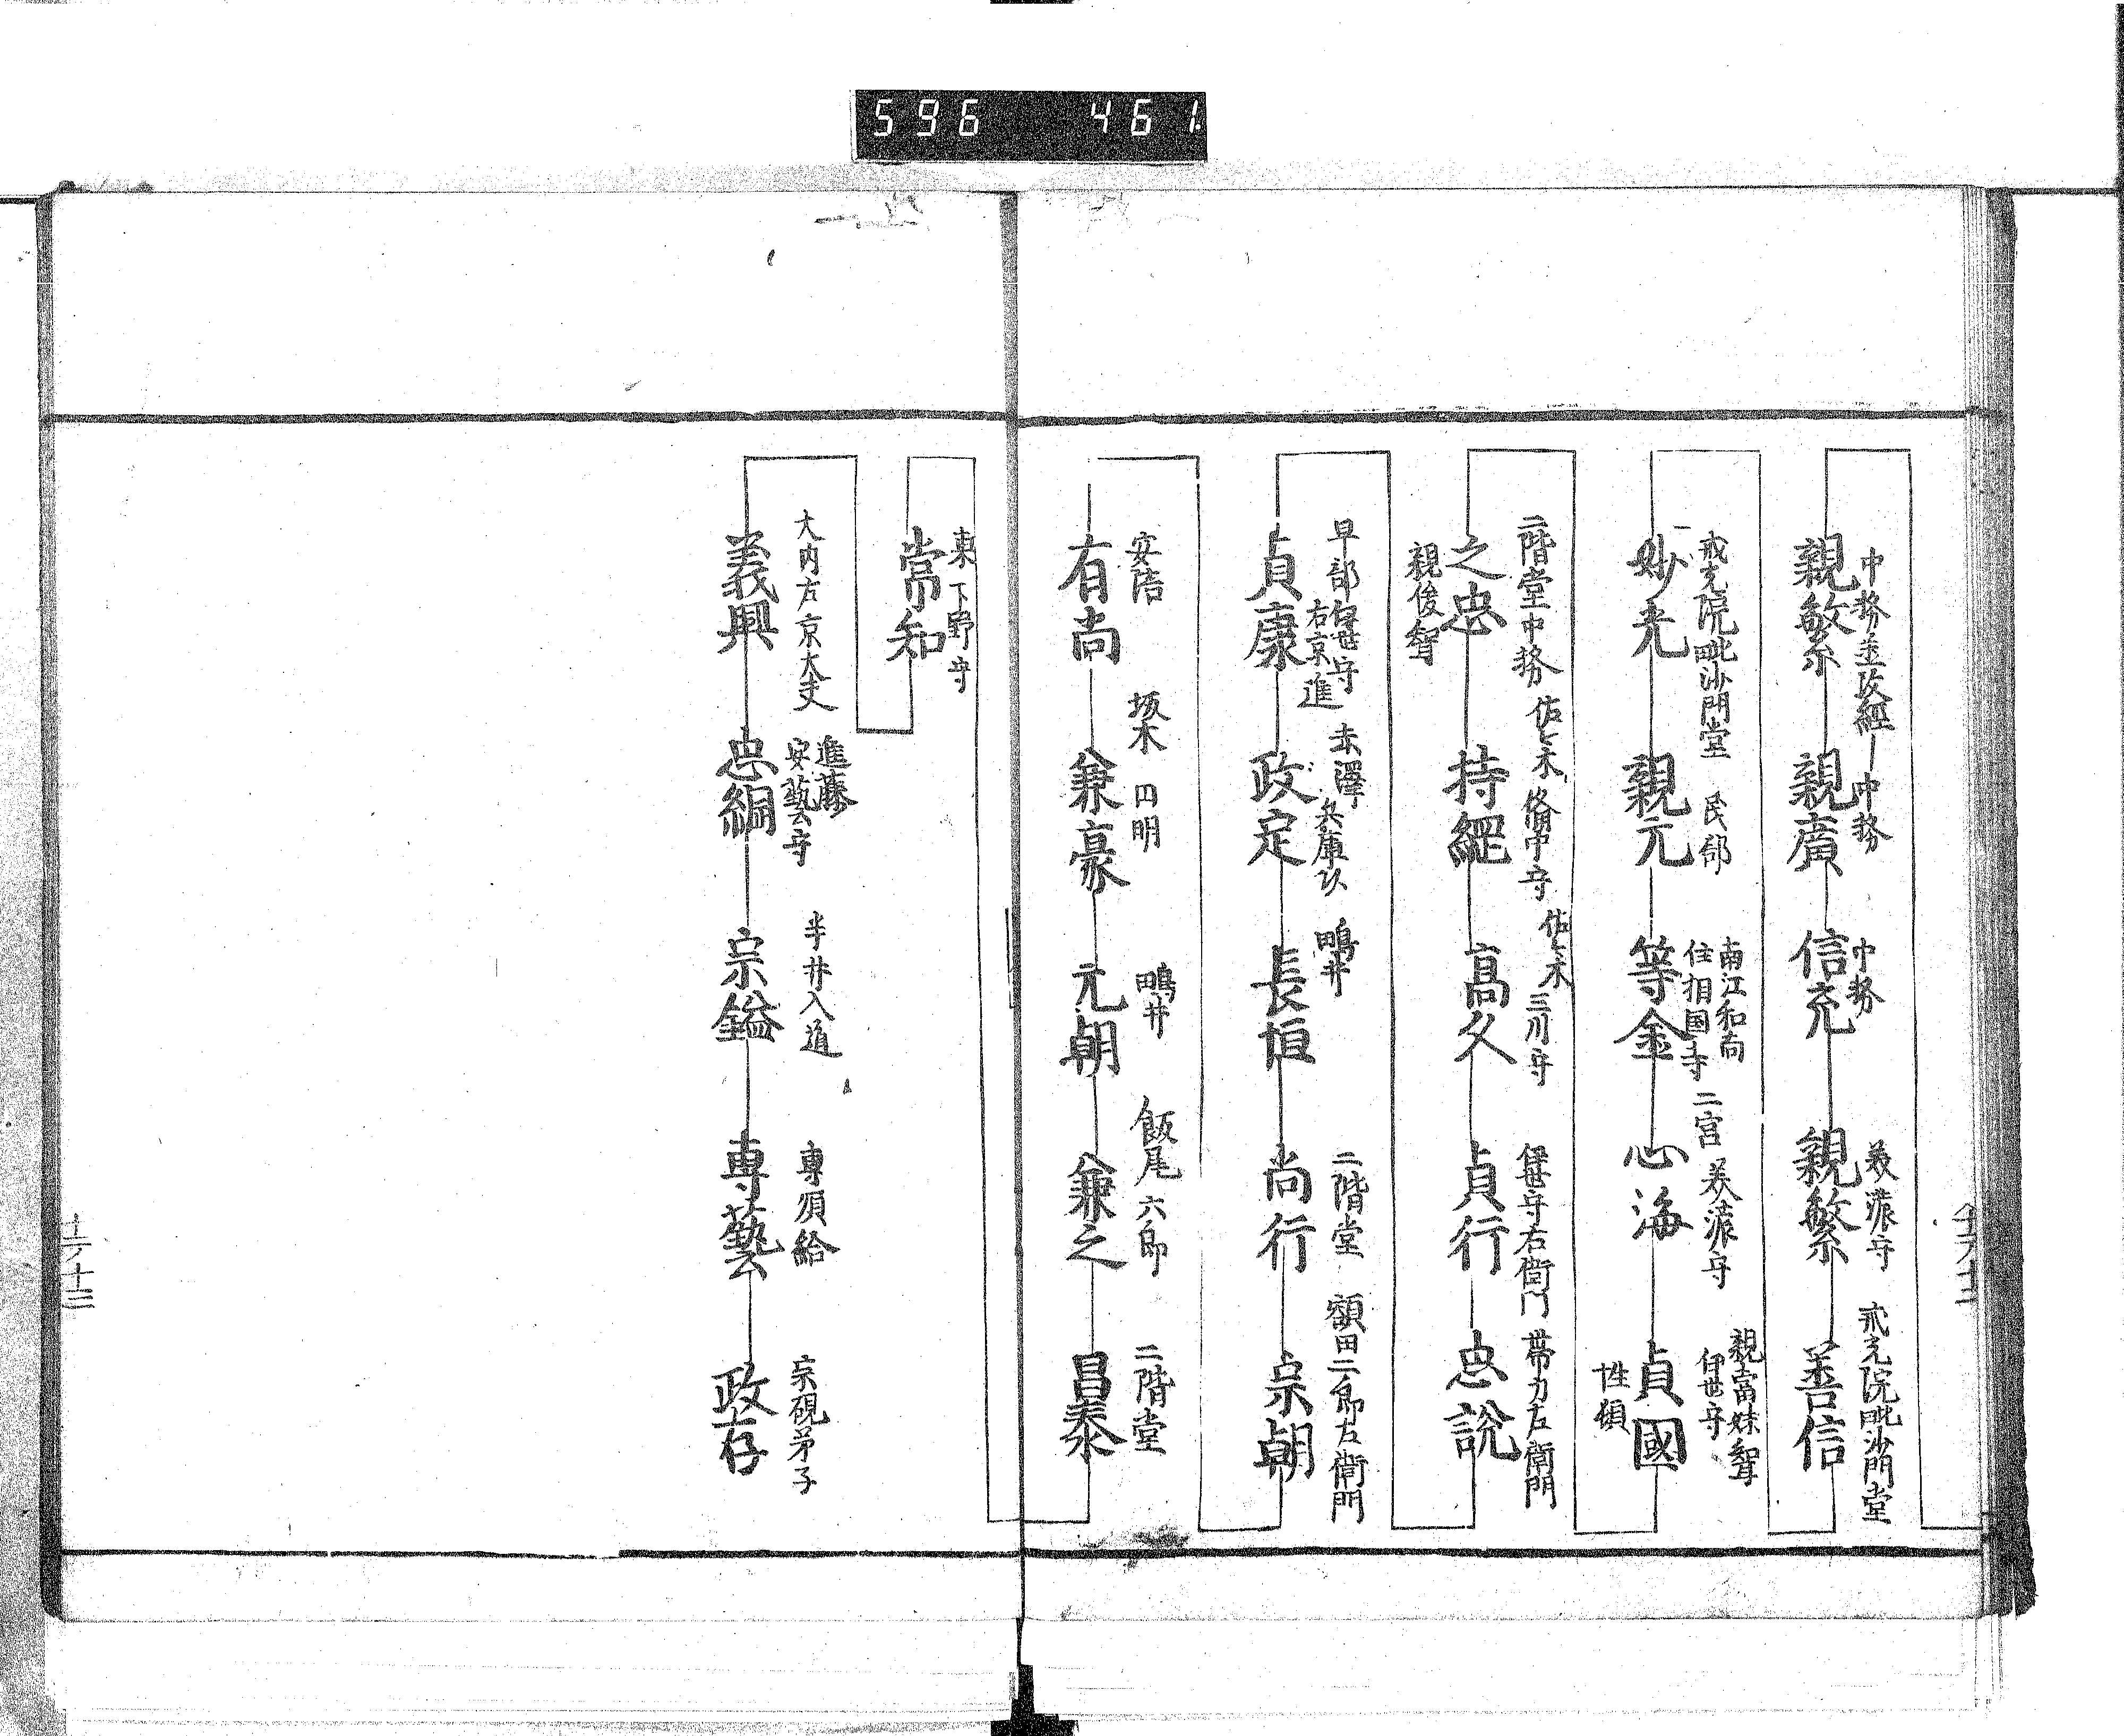 596 461
中務 親繁
親廣 中務
信充 中務
親繁 美濃守
善信 戒光院毗沙門堂
妙光 戒光院毗沙門堂
親元 民部
等金 南江和尚 住相国寺
心海 二宮 美濃守
貞國 親富妹聟 伊世守
之忠 二階堂中務 親俊聟
持綱 佐々木 備中守
高久 佐々木 三川守
貞行 右衛門
忠説 帯刀左衛門
貞康 右京進
政定 赤澤 兵庫
長恒 鴫井
尚行 二階堂
宗朝 額田二郎左衛門
有尚 安陪
兼豪 坂本 四明
元朝 鴫井
兼之 飯尾六郎
昌泰 二階堂
常和 東下野守
義興 大内左京大夫
忠綱 進藤 安藝守
宗鎰 半井入道
専藝 専順給
政存 宗硯弟子